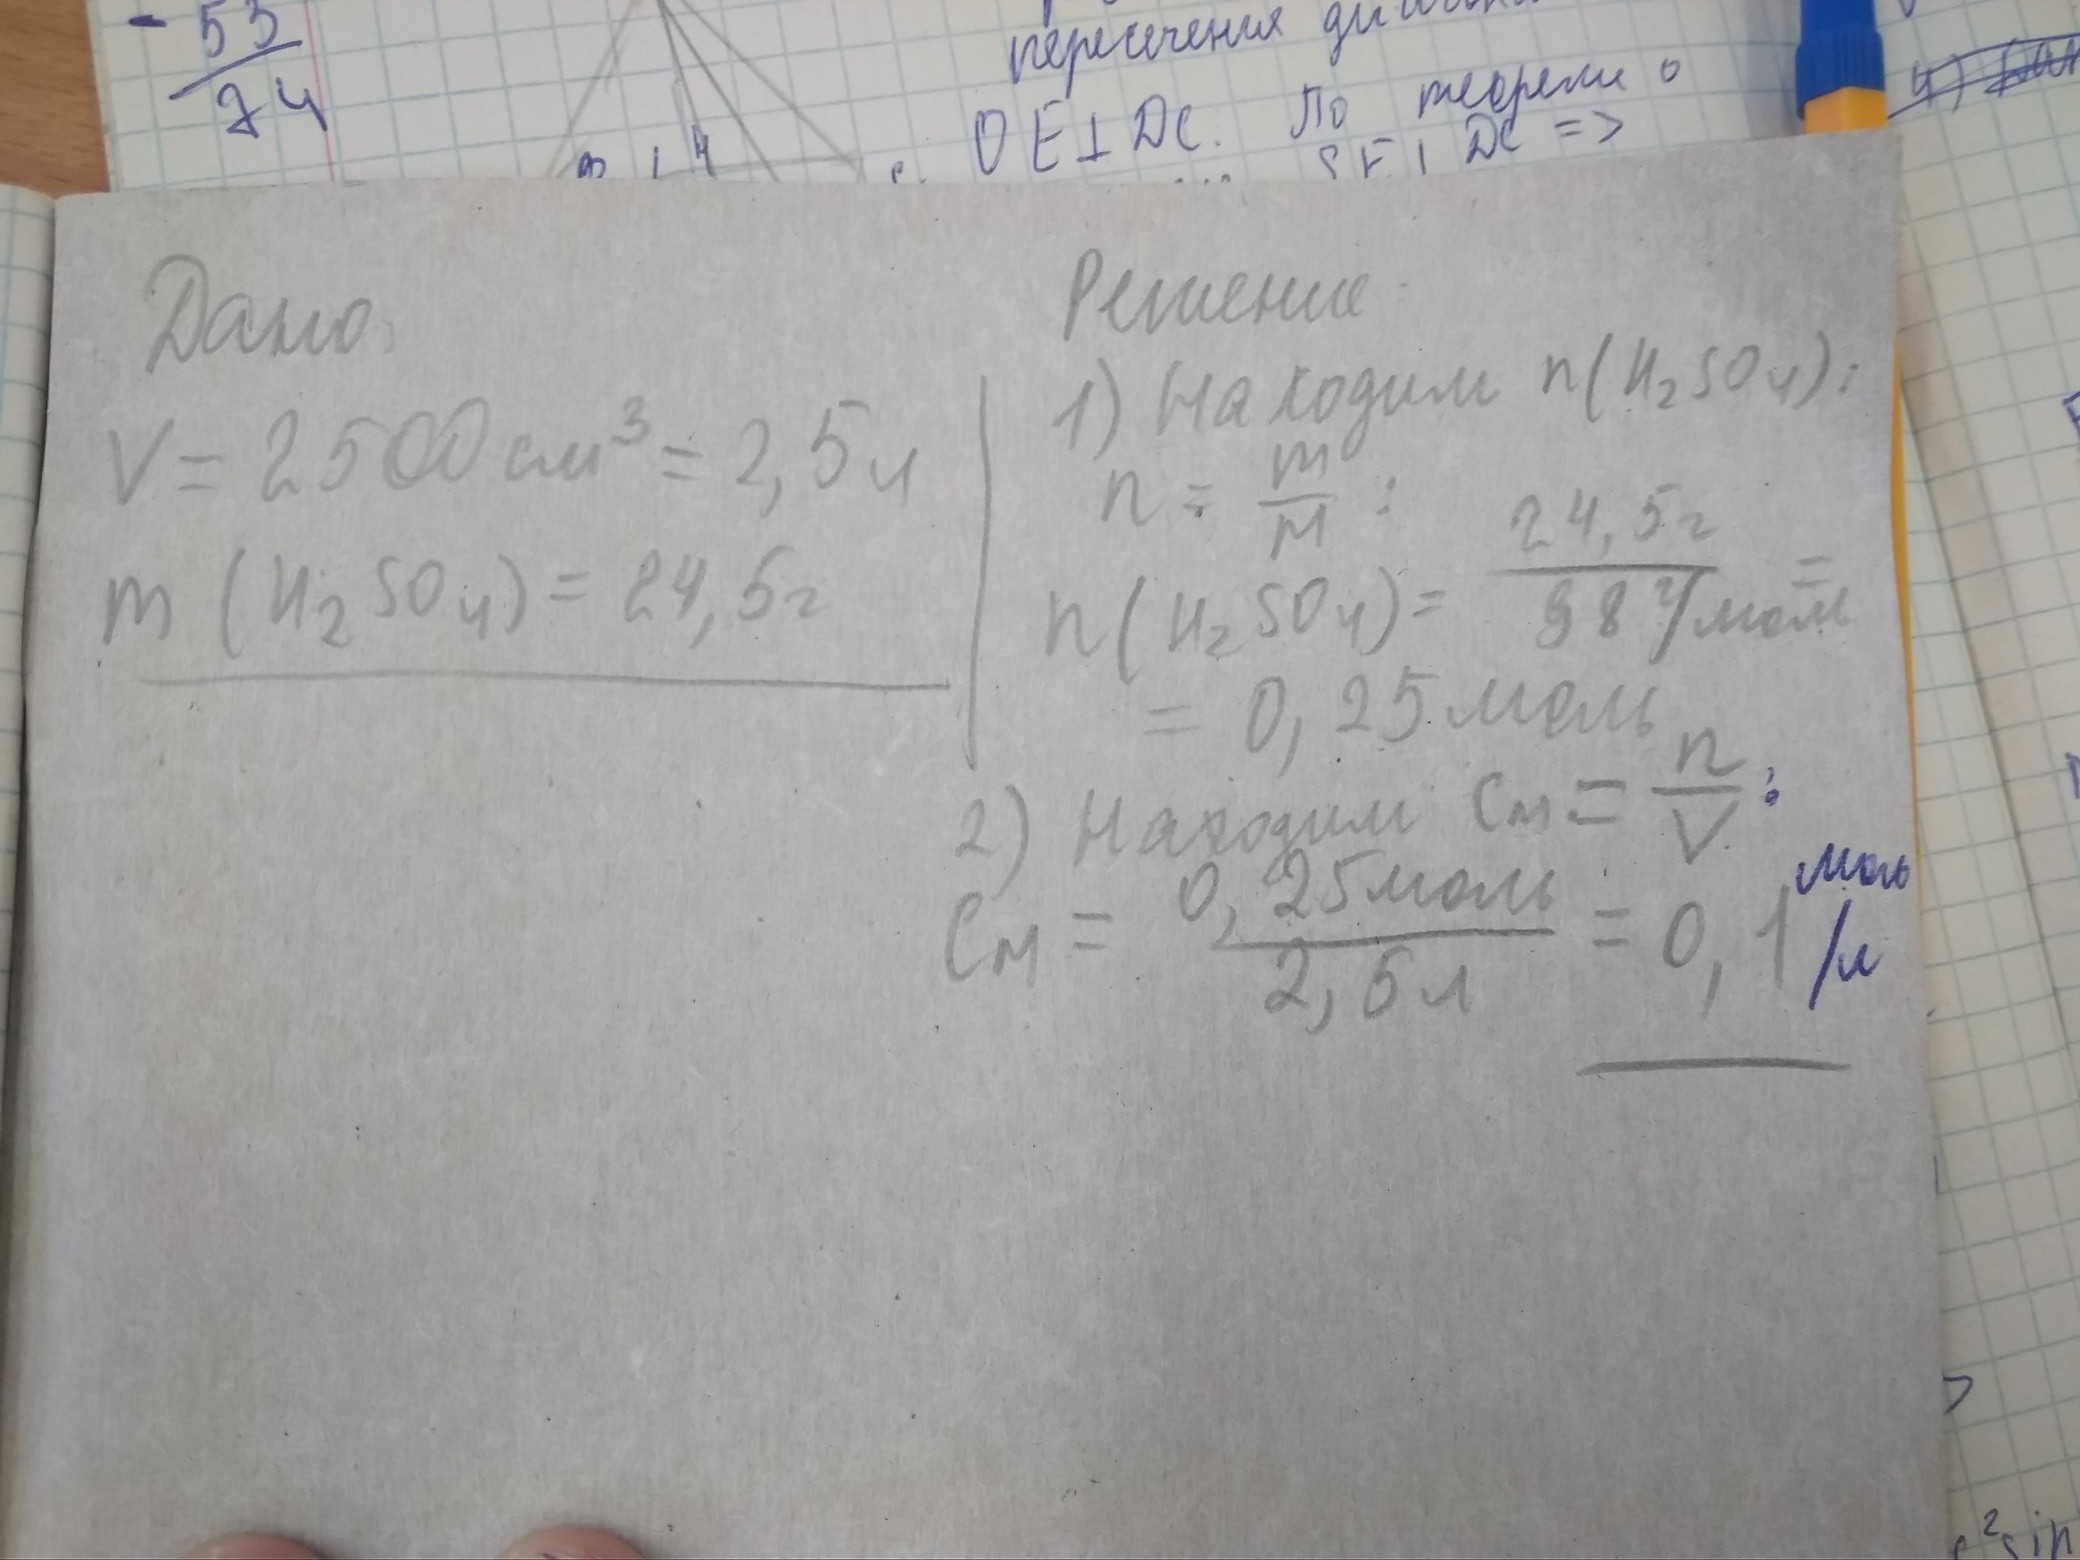 - 53
74
пересечения
OE⊥DC. По теореме о
SE⊥DC =>
4)
Дано:
V = 2500 см³ = 2,5 л
m (H₂SO₄) = 24,5 г
Решение
1) Находим n(H₂SO₄):
n = m/M :
n(H₂SO₄) = 24,5 г / 98 г/моль =
= 0,25 моль
2) Находим Cм = n/V :
Cм = 0,25 моль / 2,5 л = 0,1 моль/л
² sin